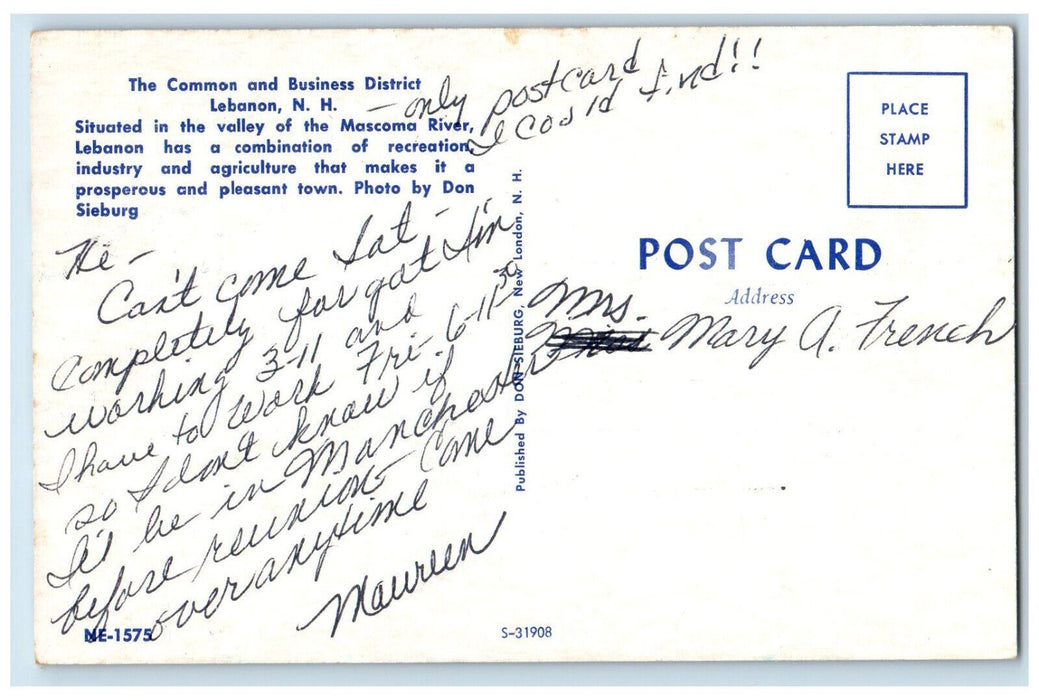 The Common and Business District
Lebanon, N. H.
Situated in the valley of the Mascoma River,
Lebanon has a combination of recreation,
industry and agriculture that makes it a
prosperous and pleasant town. Photo by Don
Sieburg
— only postcard
I could find!!
Hi -
Can't come Sat -
completely forgot I'm
working 3-11 and
I have to work Fri - 6-11³⁰
so I don't know if
I'll be in Manchester
before reunion - Come
over anytime
Maureen
NE-1575
Published By DON SIEBURG, New London, N. H.
S-31908
PLACE
STAMP
HERE
POST CARD
Address
Mrs.
Mary A. French